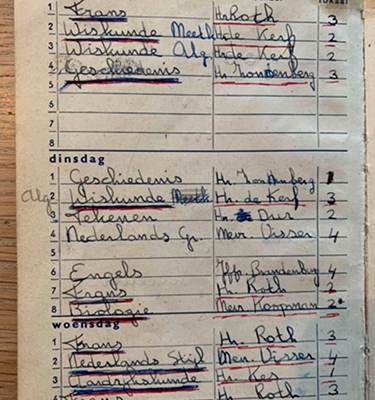 lokaal
1 Frans Hr. Roth 3
2 Wiskunde Meetk Hr. de Kerf 2
3 Wiskunde Alg. Hr. de Kerf 2
4 Geschiedenis Hr. 3
5
6
7
8
dinsdag
1 Geschiedenis Hr. 1
Alg. 2 Wiskunde Hr. de Kerf 3
3 Tekenen Hr. Dur 2
4 Nederlands Gr. Mevr. Visser 4
5
6 Engels Jffr. Brandenburg 4
7 Frans Hr. Roth 2
8 Biologie Mevr. Koopman 2
woensdag
1 Frans Hr. Roth 3
2 Nederlands Stijl Mevr. Visser 4
3 Aardrijkskunde Hr. Kes 1
4 Hr. Roth 3